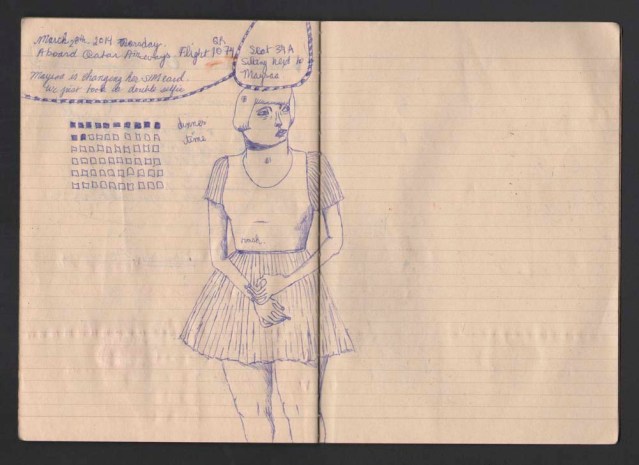 March 2014 Thursday.
Aboard Qatar Airways Flight QR
Seat 39A
Sitting next to
Maysaa
Maysaa is changing her SIM card.
We just took a double selfie
dinner
time